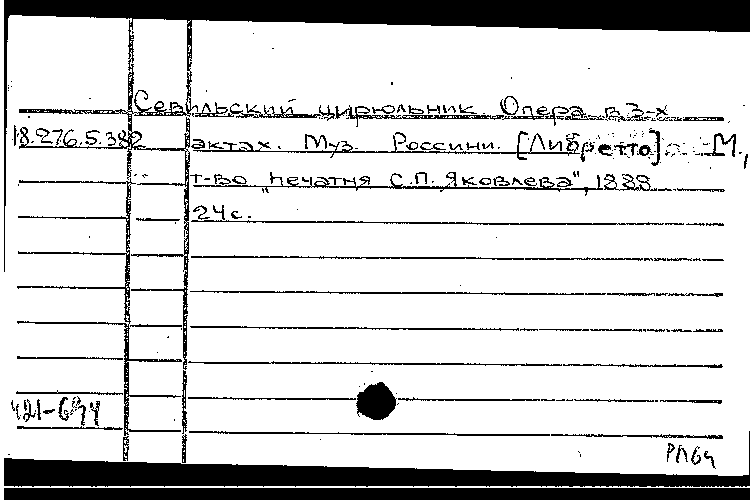 Севильский цирюльник. Опера в 3-х
18.276.5.382 актах. Муз. Россини. [Либретто]. - М.,
т-во "печатня С.П. Яковлева", 1888.
24 с.
РЛ64